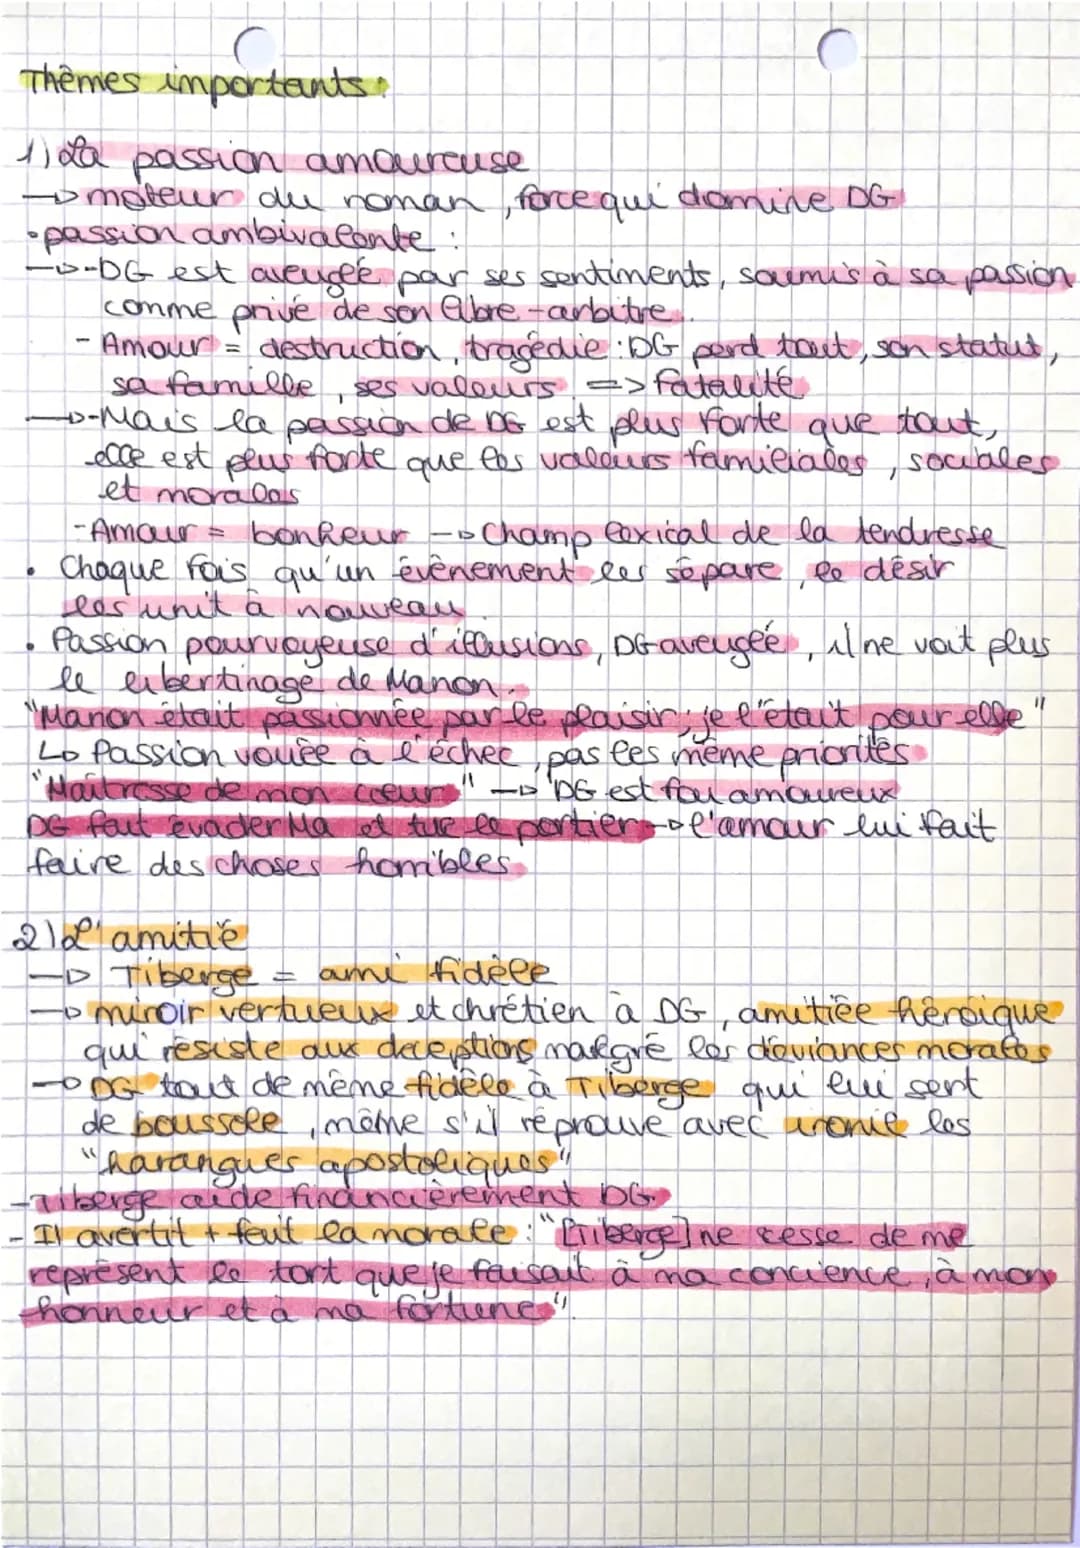 Thèmes importants :
1) La passion amoureuse
→ moteur du roman, force qui domine DG
• passion ambivalente :
→ - DG est aveuglé par ses sentiments, soumis à sa passion
comme privé de son libre-arbitre.
- Amour = destruction, tragédie : DG perd tout, son statut,
sa famille, ses valeurs => fatalité
→ - Mais la passion de DG est plus forte que tout,
elle est plus forte que les valeurs familiales, sociales
et morales
- Amour = bonheur → Champ lexical de la tendresse
• Chaque fois qu'un évènement les sépare, le désir
les unit à nouveau
• Passion pourvoyeuse d'illusions, DG aveuglé, il ne voit plus
le libertinage de Manon.
"Manon était passionnée par le plaisir ; je l'était pour elle"
↳ Passion vouée à l'échec, pas les même priorités
"Maîtresse de mon cœur" → DG est fou amoureux
DG fait évader Ma et tue le portier → l'amour lui fait
faire des choses horribles.
2) L'amitié
→ Tiberge = ami fidèle
→ miroir vertueux et chrétien à DG, amitiée héroïque
qui résiste aux deceptions malgré les déviances morales
→ DG tout de même fidèle à Tiberge qui lui sert
de boussole, même s'il réprouve avec ironie les
"harangues apostoliques"
- Tiberge aide financièrement DG.
- Il avertit + fait la morale : "[Tiberge] ne cesse de me
représent le tort que je faisait à ma concience, à mon
honneur et à ma fortune".